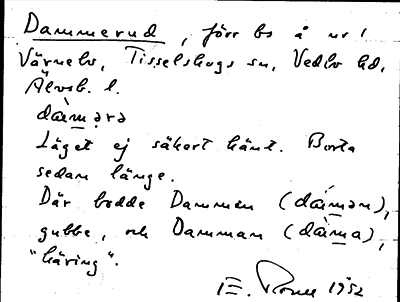 Dammerud, förr bs å nr 1
Värnebo, Tisselskogs sn, Vedbo hd,
Älvsb. l.
dàmərə
Läget ej säkert känt. Borta
sedan länge.
Där bodde Dammen (dámən),
gubbe, och Damman (dáma),
"käring".
1952